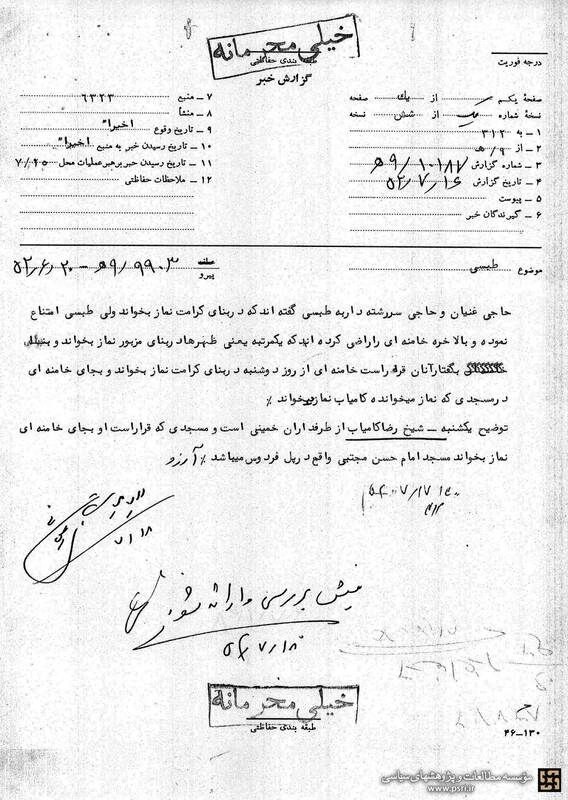 خیلی محرمانه
طبقه بندی حفاظتی
گزارش خبر
درجه فوریت
صفحه یکم از یک صفحه
نسخه شماره یک از شش نسخه
۱ – به ۳۱۲
۲ – از ۹/ھ
۳ – شماره گزارش ۱۰۱۸۷/۹ھ
۴ – تاریخ گزارش ۵۲/۷/۱۶
۵ – پیوست
۶ – گیرندگان خبر
۷ – منبع ۶۳۲۳
۸ – منشأ
۹ – تاریخ وقوع اخیرا"
۱۰ – تاریخ رسیدن خبر به منبع اخیرا"
۱۱ – تاریخ رسیدن خبر برهبر عملیات محل ۷/۱۵
۱۲ – ملاحظات حفاظتی
موضوع طبسی
پیرو ۹۹۰۳/۹ھ – ۵۲/۶/۲۰
حاجی غنیان و حاجی سررشته دار به طبسی گفته اند که در بنای کرامت نماز بخواند ولی طبسی امتناع
نموده و بالاخره خامنه ای را راضی کرده اند که یکمرتبه یعنی ظهرها در بنای مزبور نماز بخواند و بنا
بگفتار آنان قرار است خامنه ای از روز دوشنبه در بنای کرامت نماز بخواند و بجای خامنه ای
در مسجدی که نماز میخوانده کامیاب نماز بخواند ٪
توضیح یکشنبه – شیخ رضا کامیاب از طرفداران خمینی است و مسجدی که قرار است او بجای خامنه ای
نماز بخواند مسجد امام حسن مجتبی واقع در پل فردوس میباشد ٪ آرزو
۷/۱۷
۷/۱۸
فیش بررسی و ارائه شود
۵۲/۷/۱۸
خیلی محرمانه
طبقه بندی حفاظتی
۴۶–۱۳۰
مؤسسه مطالعات و پژوهشهای سیاسی
www.psri.ir